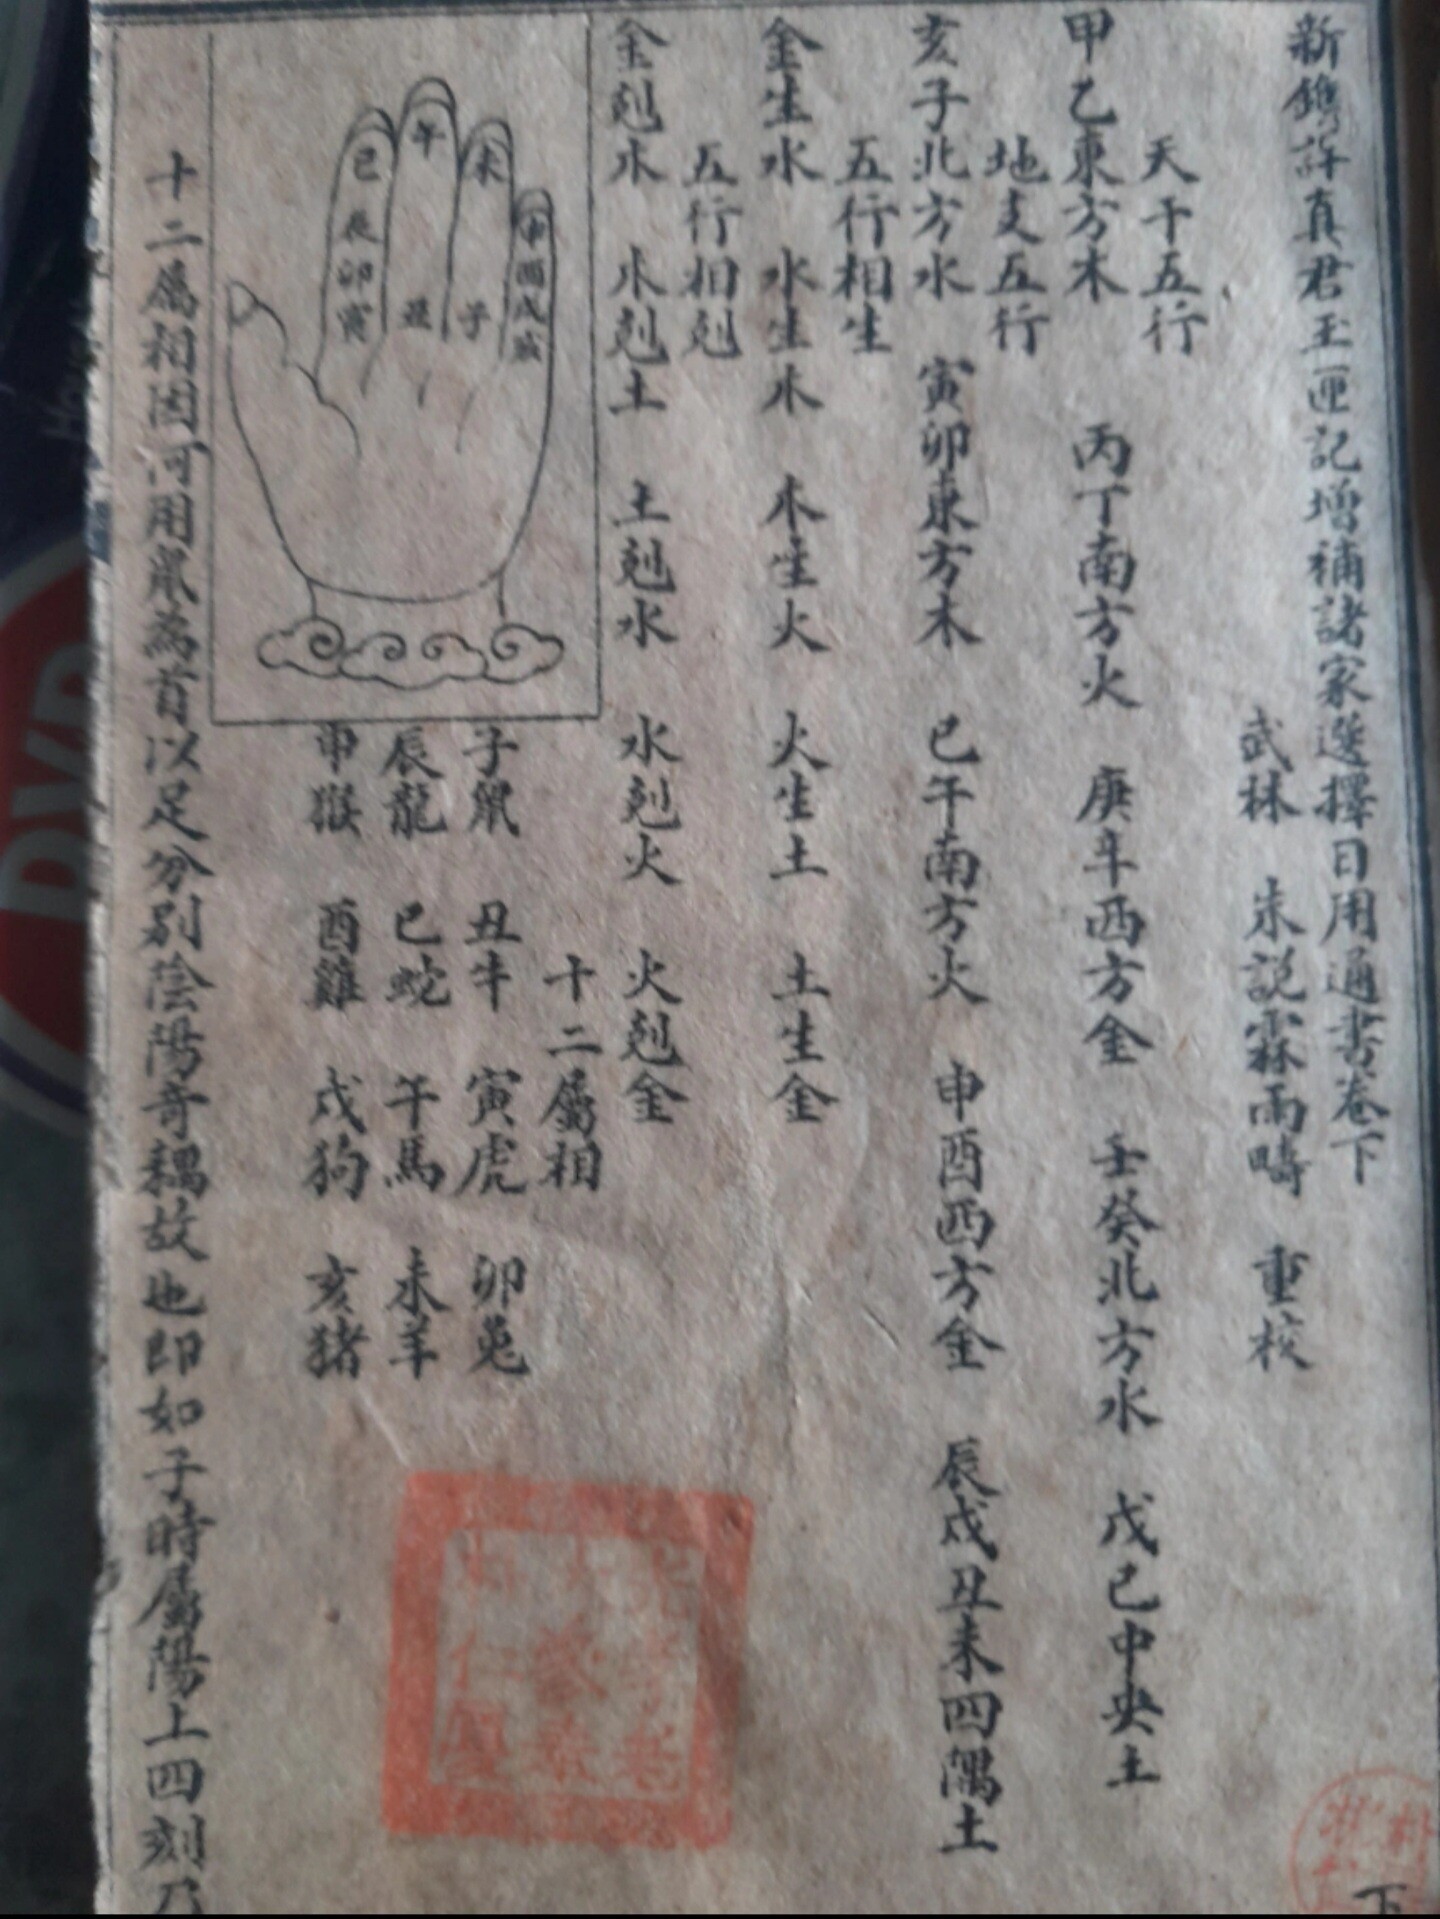 新鐫許真君玉匣記增補諸家選擇日用通書卷下
武林 朱說霖雨疇 重校
天干五行
甲乙東方木 丙丁南方火 庚辛西方金 壬癸北方水 戊己中央土
地支五行
亥子北方水 寅卯東方木 巳午南方火 申酉西方金 辰戌丑未四隅土
五行相生
金生水 水生木 木生火 火生土 土生金
五行相剋
金剋木 木剋土 土剋水 水剋火 火剋金
申酉戌亥
未子
午丑
巳辰卯寅
十二屬相
子鼠 丑牛 寅虎 卯兔
辰龍 巳蛇 午馬 未羊
申猴 酉雞 戌狗 亥猪
十二屬相因何用鼠為首以足分別陰陽奇耦故也即如子時屬陽上四刻乃
下